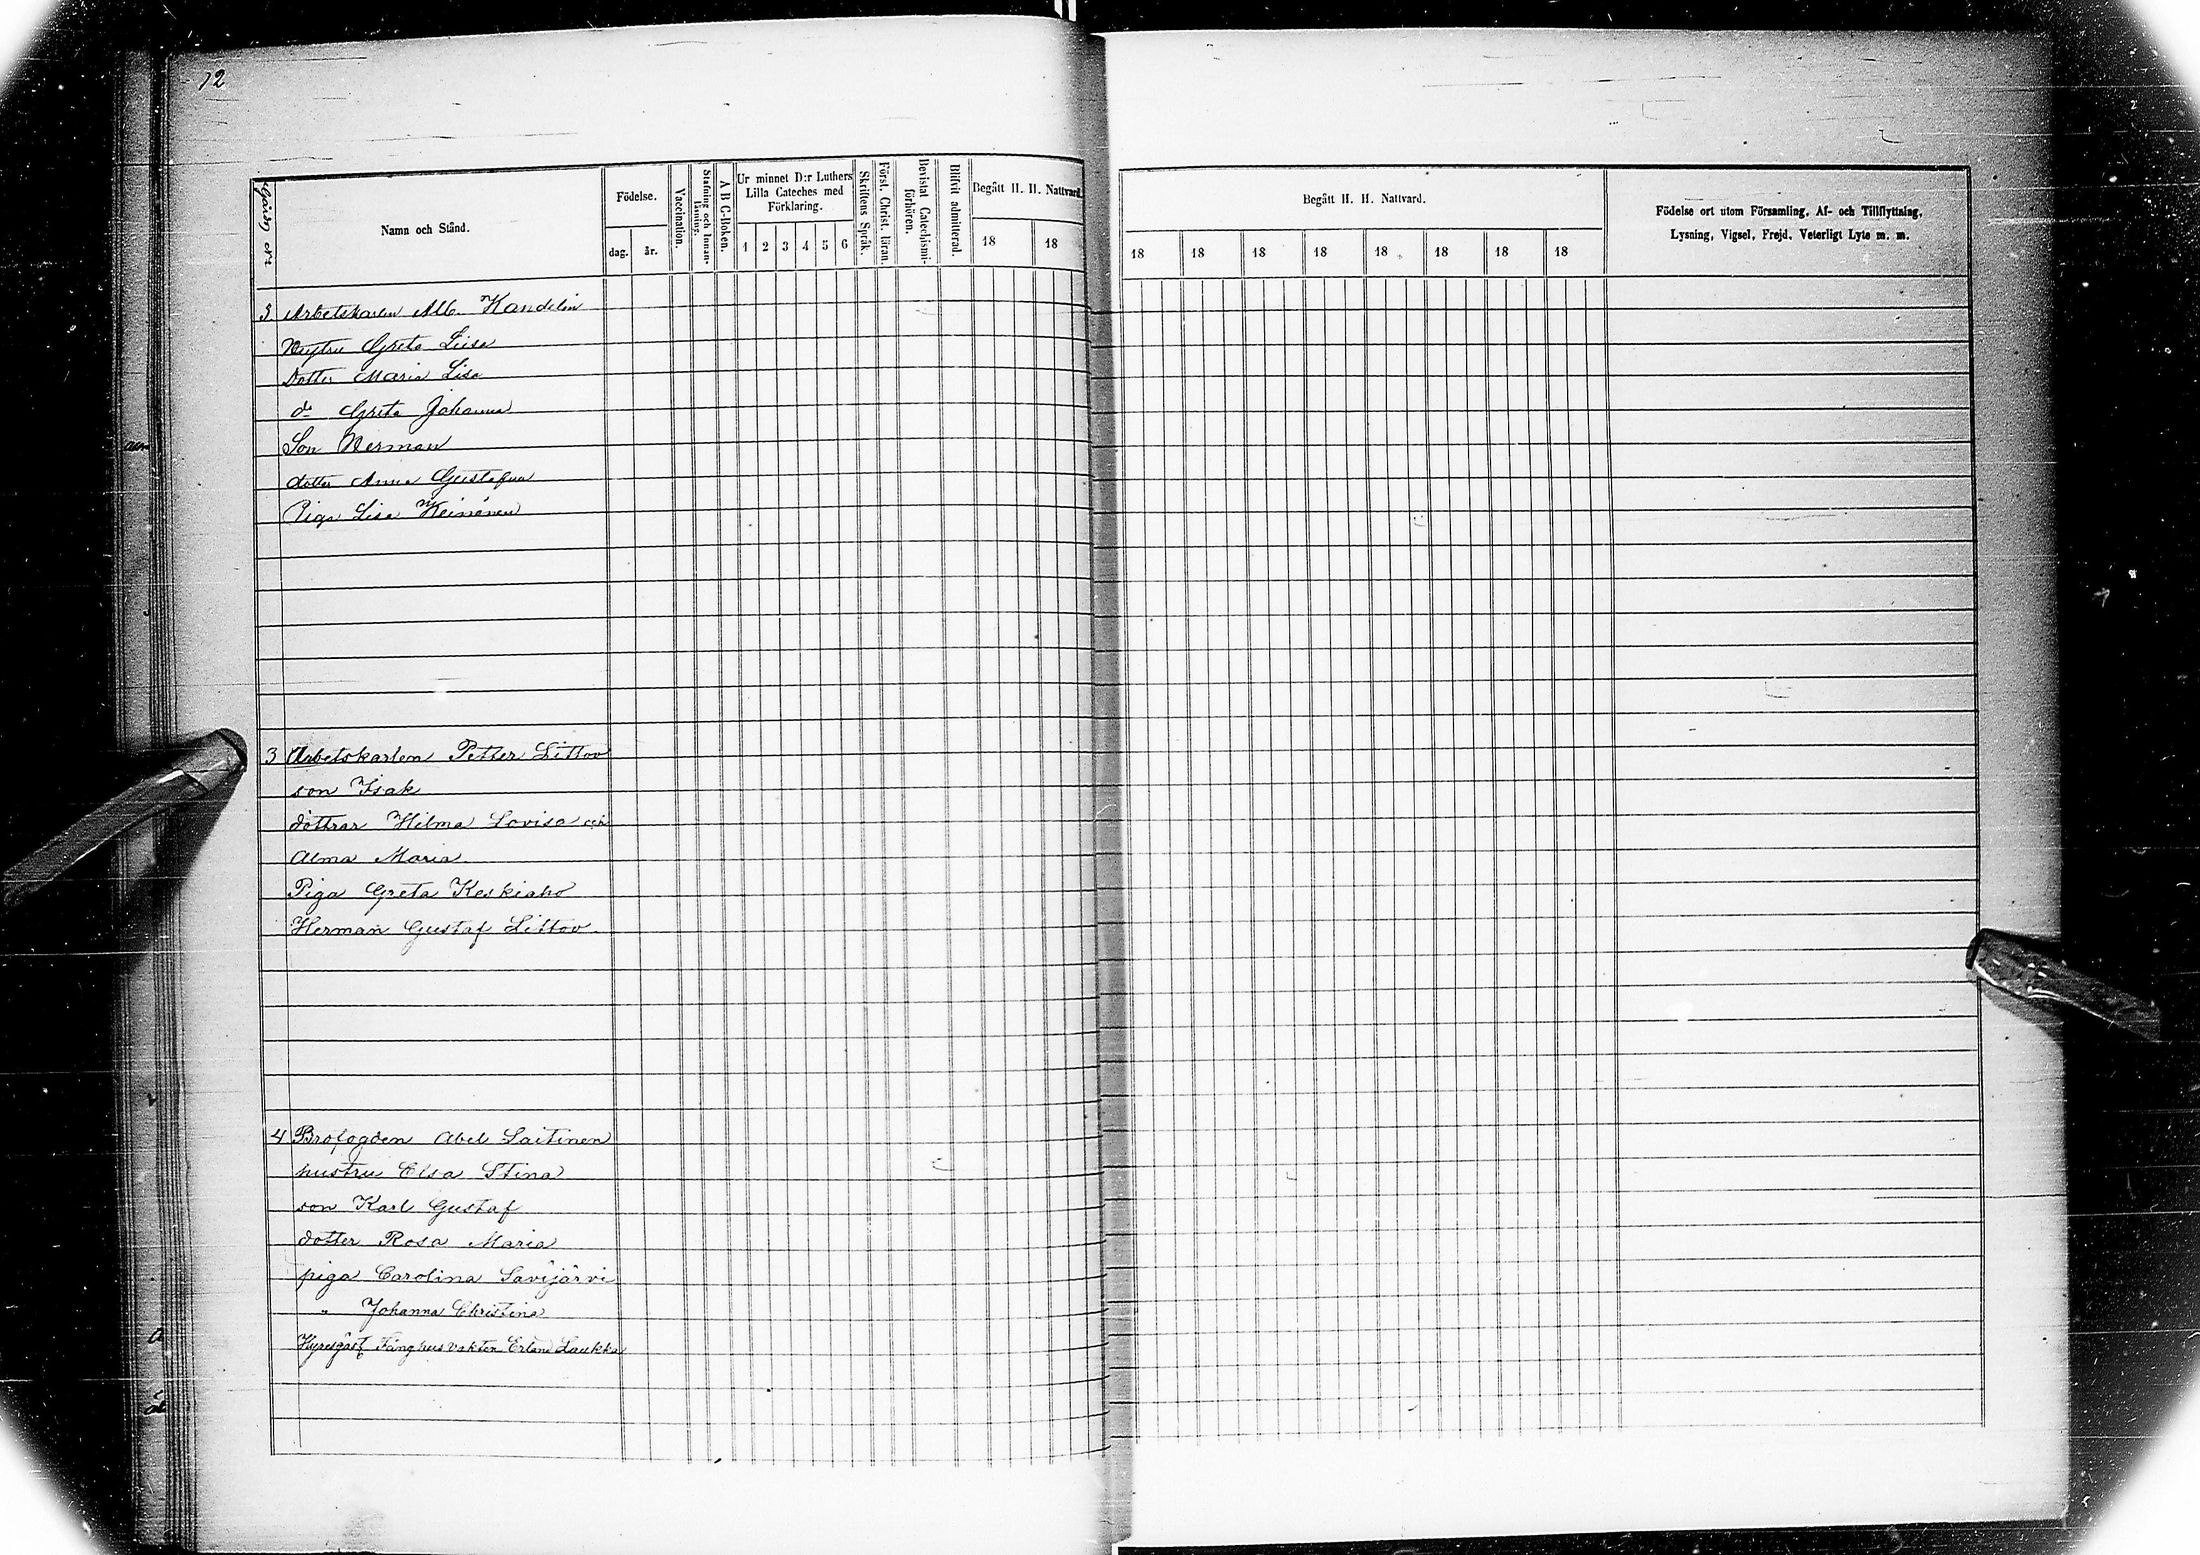 12
Gård N:r
Namn och Stånd.
Födelse.
dag.
år.
Vaccination.
Stafning och Innan-
läsning.
A B C-Boken.
Ur minnet D:r Luthers
Lilla Cateches med
Förklaring.
1 2 3 4 5 6
Skriftens Språk.
Först. Christ. läran.
Bevistat Catechismi-
förhören.
Blifvit admitterad.
Begått H. H. Nattvard.
18 18
Begått H. H. Nattvard.
18 18 18 18 18 18 18 18
Födelse ort utom Församling, Af- och Tillflyttning,
Lysning, Vigsel, Frejd, Veterligt Lyte m. m.
3 Arbetskarlen Alb. Kandelin
Hustru Greta Lisa
Dotter Maria Lisa
d:o Greta Johanna
Son Herman
dotter Anna Gustafva
Piga Lisa Heinonen
3 Arbetskarlen Petter Littov
son Isak
döttrar Hilma Lovisa och
Alma Maria
Piga Greta Keskiaho
Herman Gustaf Littov
4 Brofogden Abel Laitinen
hustru Elsa Stina
son Karl Gustaf
dotter Rosa Maria
piga Carolina Savijärvi
" Johanna Christina
Hyresgäst Fånghusvakten Erland Laukka